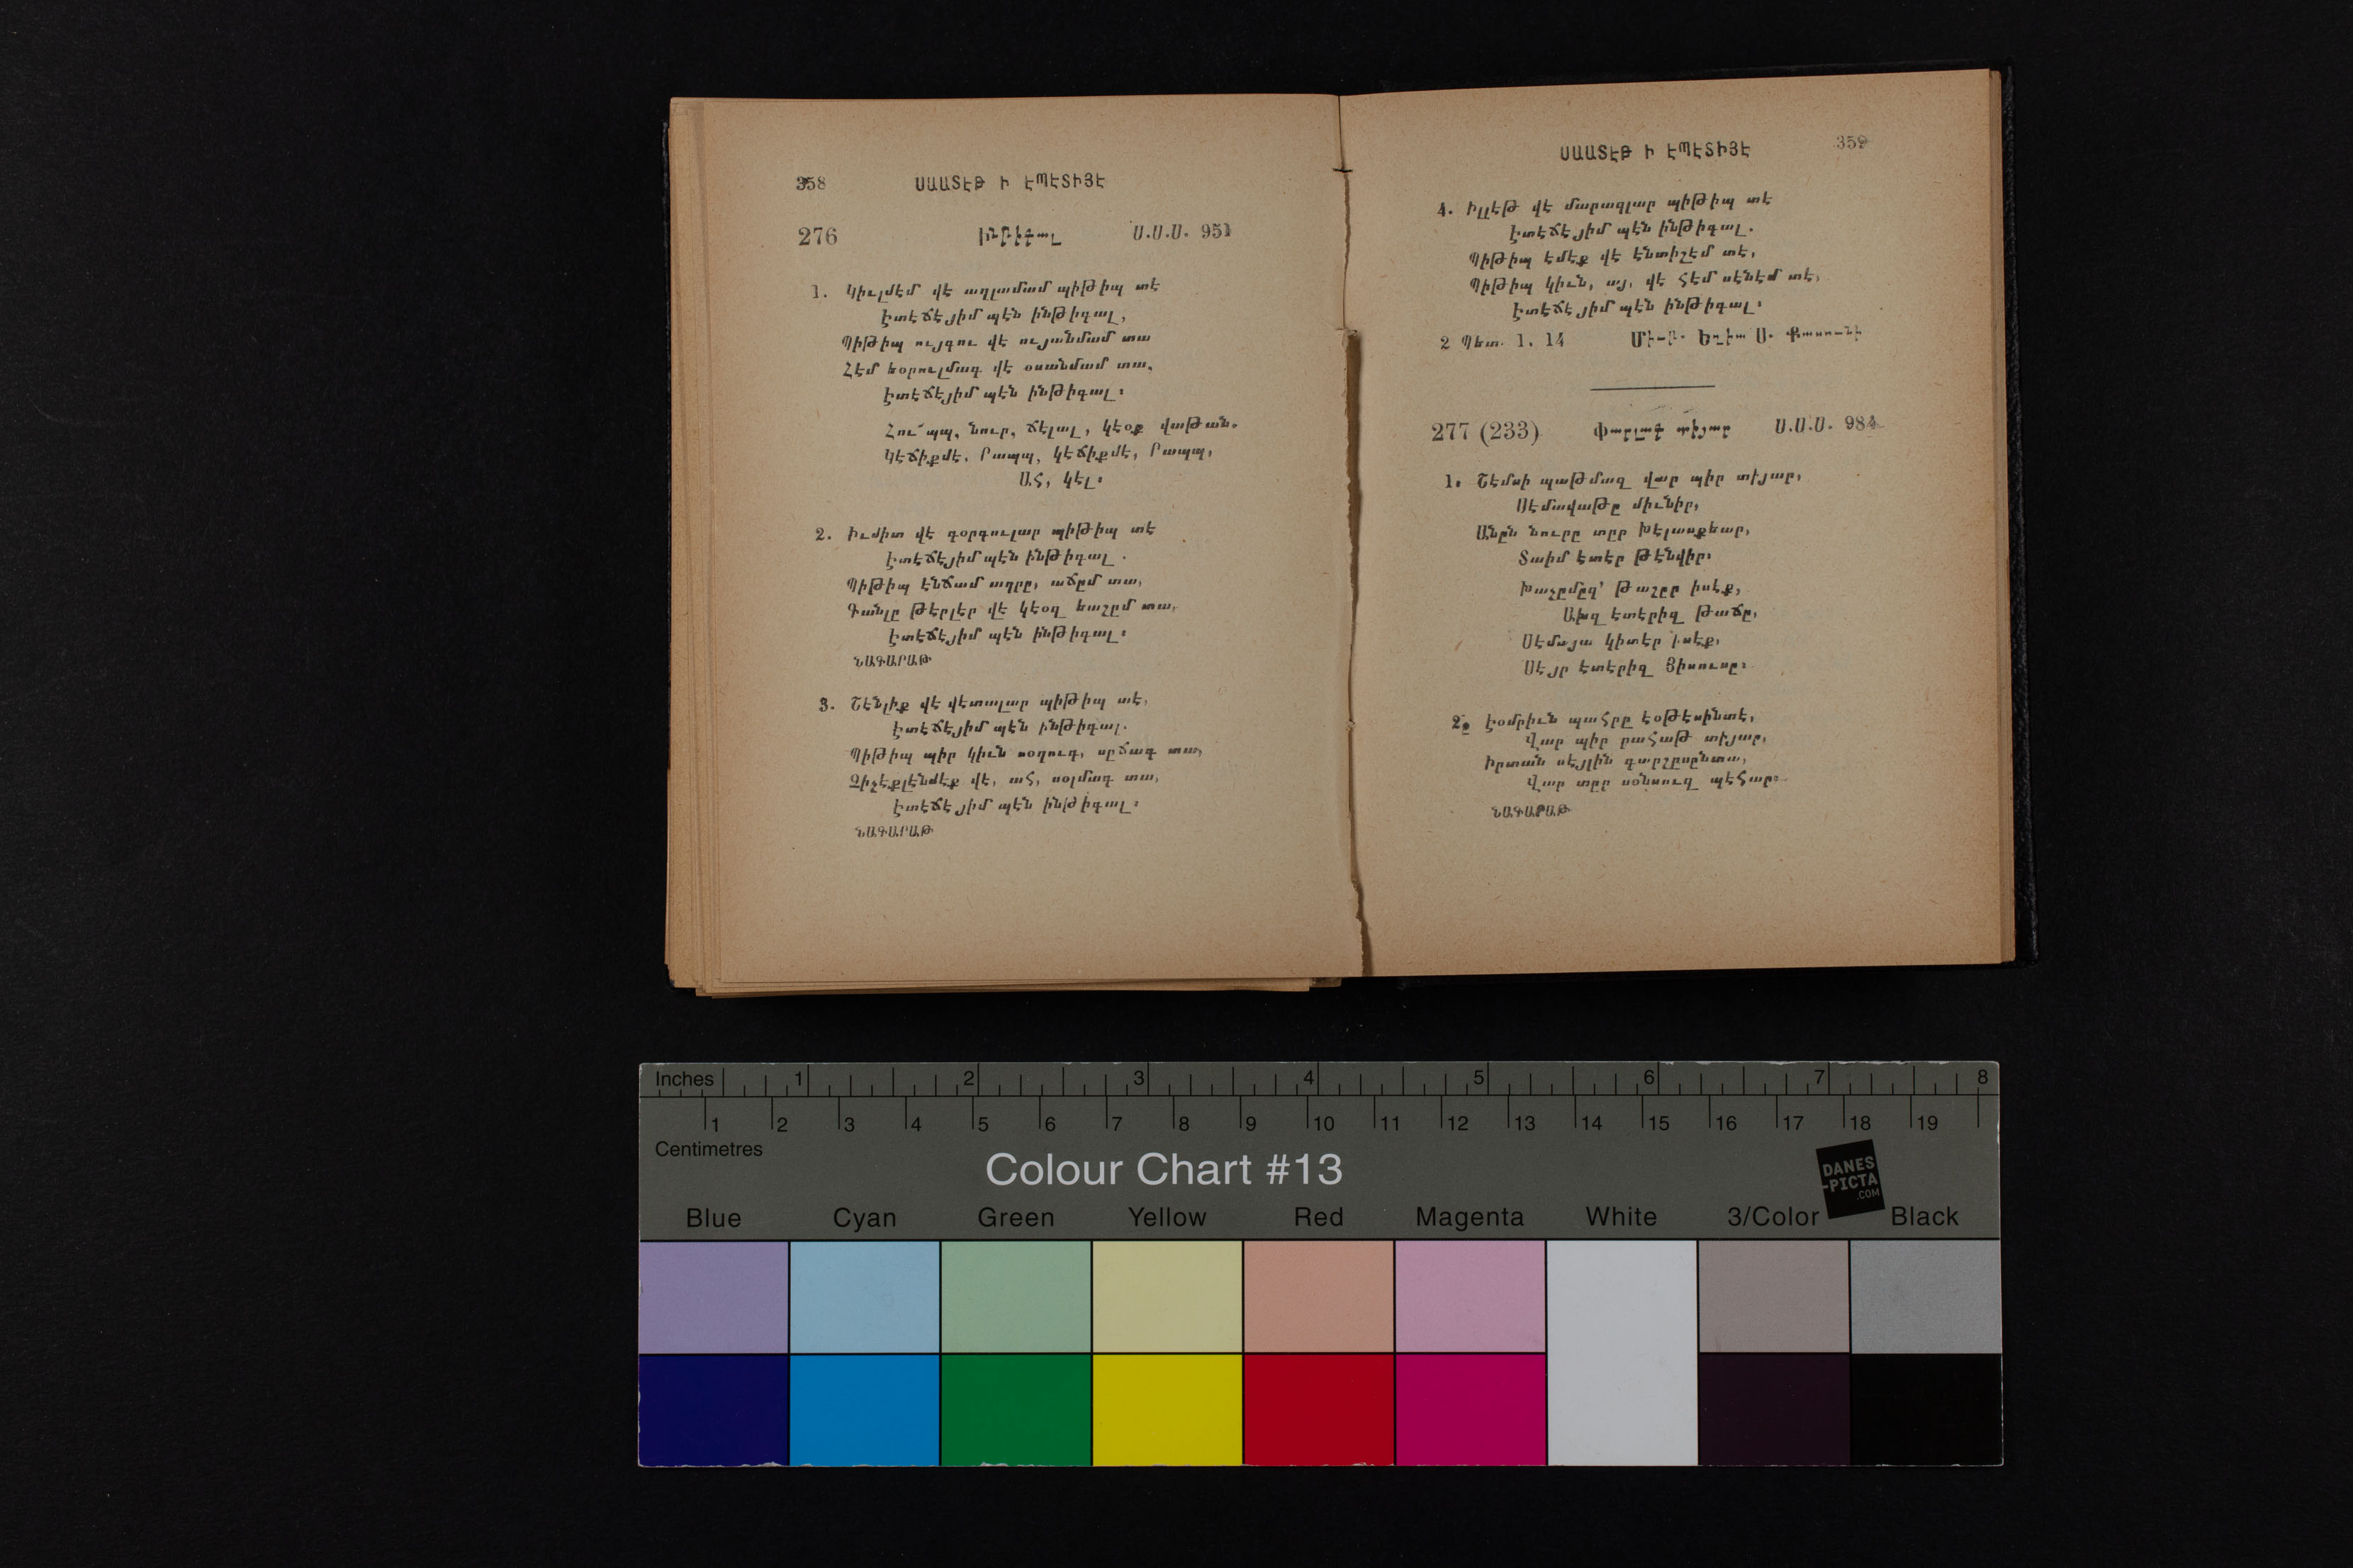 358 ՍԱԱՏԷԹ Ի ԷՊԷՏԻՅԷ
276 Ինթիգալ Ս.Ս.Ս. 951
1. Կիւլմէմ վէ աղլամամ պիթիպ տէ
Էտէճէյիմ պէն ինթիգալ,
Պիթիպ ույգու վէ ույանմամ տա
Հէմ եօրուլմագ վէ օսանմամ տա,
Էտէճէյիմ պէն ինթիգալ։
Հու՜պպ, նուր, ճէլալ, կէօք վաթան.
Կէճիքմէ, Րապպ, կէճիքմէ, Րապպ,
ԱՀ, կէլ։
2. Իւմիտ վէ գօրգուլար պիթիպ տէ
Էտէճէյիմ պէն ինթիգալ.
Պիթիպ էնճամ աղրը, աճըմ տա,
Գանլը թէրլէր վէ կէօզ եաշըմ տա,
Էտէճէյիմ պէն ինթիգալ։
ՆԱԳԱՐԱԹ
3. Շէնլիք վէ վէտալար պիթիպ տէ,
Էտէճէյիմ պէն ինթիգալ.
Պիթիպ պիր կիւն սօղուգ, սըճագ տա,
Չիչէքլէնմէք վէ, ահ, սօլմագ տա,
Էտէճէյիմ պէն ինթիգալ։
ՆԱԳԱՐԱԹ
ՍԱԱՏԷԹ Ի ԷՊԷՏԻՅԷ 359
4. Իլլէթ վէ մարազլար պիթիպ տէ
Էտէճէյիմ պէն ինթիգալ.
Պիթիպ էմէք վէ էնտիշէմ տէ,
Պիթիպ կիւն, այ, վէ հէմ սէնէմ տէ,
Էտէճէյիմ պէն ինթիգալ։
2 Պետ. 1. 14 Միւթ. Եղիա Ս. Քասունի
277 (233) Փարլագ տիյար Ս.Ս.Ս. 984
1. Շէմսի պաթմազ վար պիր տիյար,
Սէմավաթը միւնիր,
Անըն նուրը տըր Խէլասքեար,
Տաիմ էտէր թէնվիր։
Խաչըմըզ՝ թաշըր իսէք,
Ախզ էտէրիզ թաճը,
Սէմայա կիտէր իսէք,
Սէյր էտէրիզ Յիսուսը։
2. Էօմրիւն պահրը էօթէսինտէ,
Վար պիր րահաթ տիյար,
Իրտան սէյլին գարշըսընտա,
Վար տըր սօնսուզ պէհար։
ՆԱԳԱՐԱԹ
Inches 1 2 3 4 5 6 7 8
1 2 3 4 5 6 7 8 9 10 11 12 13 14 15 16 17 18 19
Centimetres
Colour Chart #13
DANES
-PICTA
.COM
Blue Cyan Green Yellow Red Magenta White 3/Color Black